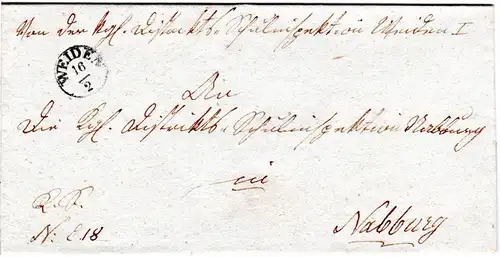 Von der Kgl. Distrikts-Schulinspektion Weiden I
WEIDEN
16/2
An
Die Kgl. Distrikts-Schulinspektion Nabburg
in
R. S.
Nabburg
N: E 18